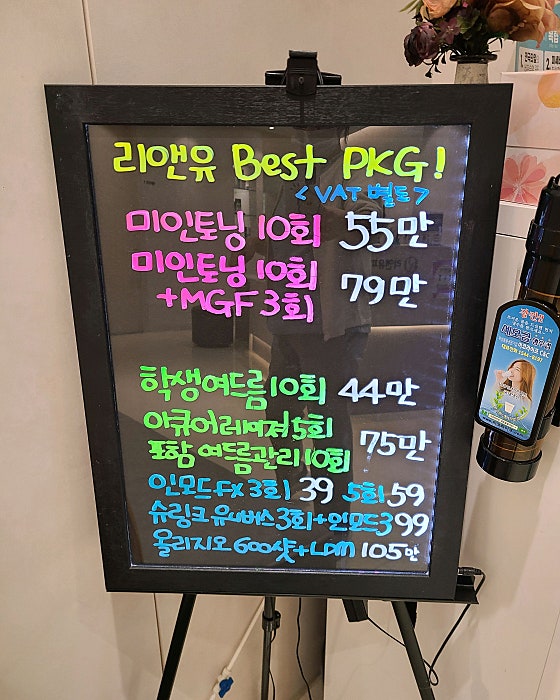 리앤유 Best PKG!
<VAT 별도>
미인토닝 10회 55만
미인토닝 10회
+MGF 3회 79만
학생여드름 10회 44만
아큐어레이져 5회
포함 여드름관리 10회 75만
인모드FX 3회 39 5회 59
슈링크 유니버스 3회+인모드3 99
올리지오 600샷+LDM 105만